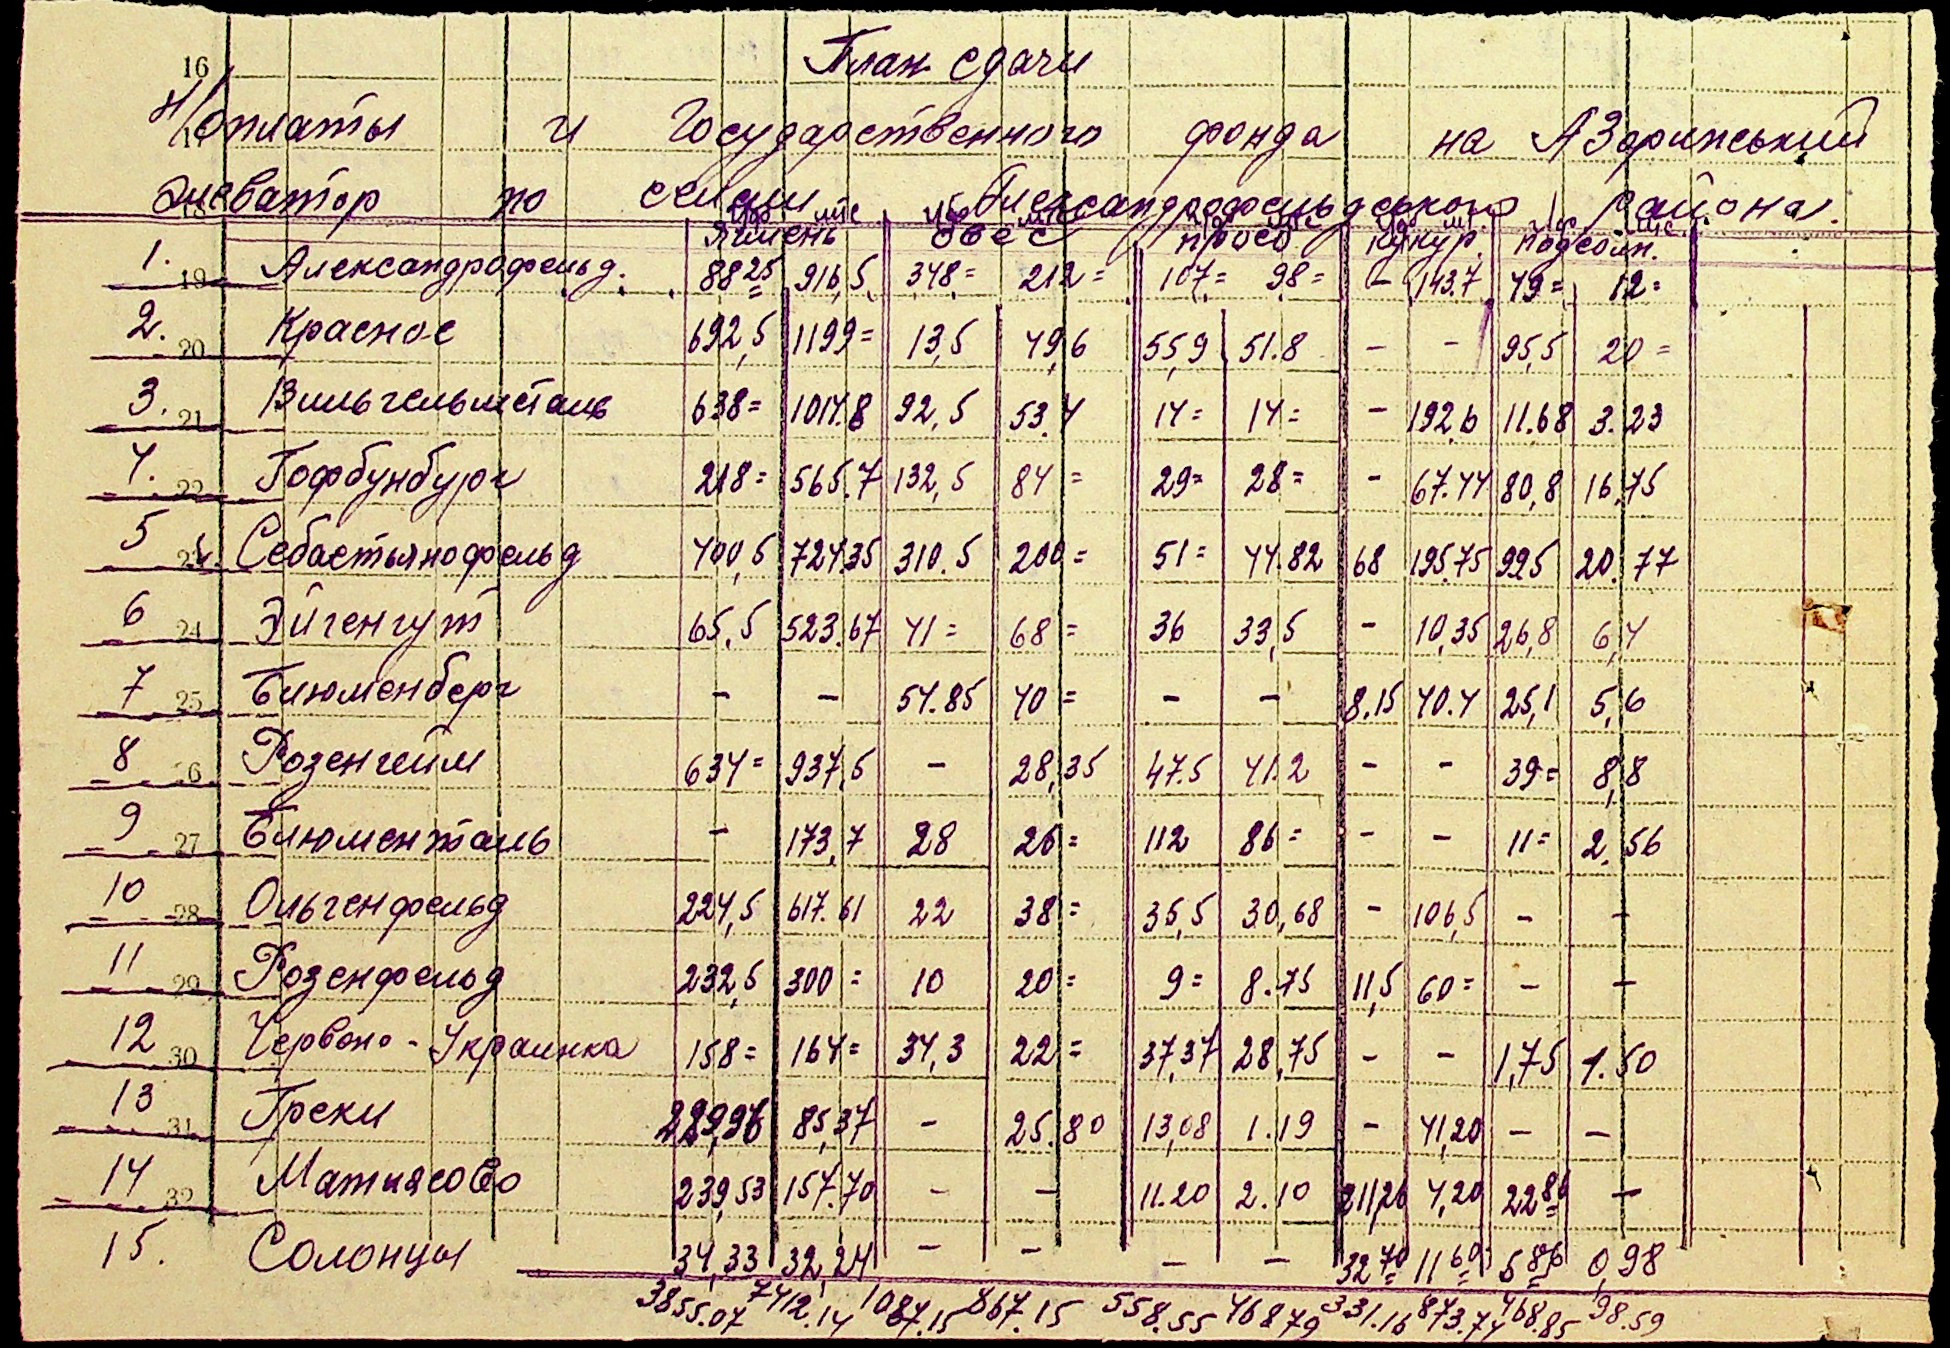 План сдачи
Н/оплаты и Государственного фонда на
Элеватор по селам Александрофельдського района.
ячмень овес просо кукур. подсолн.
1. 19 Александрофельд. 88 25 916,5 348= 212= 107= 98= - 143.7 49= 12=
2. 20 Красное 692,5 1199= 13,5 49,6 55,9 51.8 - - 95,5 20=
3. 21 Вильгельмсталь 638= 1014.8 92,5 53.4 14= 14= - 192,6 11.68 3.23
4. 22 Гофбунбург 218= 565.7 132,5 84= 29= 28= - 67.44 80,8 16,75
5 23 Себастьянофельд 400,5 724.35 310.5 200= 51= 44.82 68 195.75 99,5 20.77
6 24 Эйгенгут 65,5 523.67 41= 68= 36 33,5 - 10,35 26,8 6,4
7 25 Блюменберг - - 54.85 40= - - 8.15 40.4 25,1 5,6
8 26 Розенгейм 634= 937,5 - 28,35 47.5 41.2 - - 39= 8,8
9 27 Блюменталь - 173,7 28 26= 112 86= - - 11= 2.56
10 28 Ольгенфельд 224,5 617.61 22 38= 35,5 30,68 - 106,5 - -
11 29 Розенфельд 232,5 300= 10 20= 9= 8.75 11,5 60= - -
12 30 Червоно-Украинка 158= 164= 34,3 22= 37,37 28,75 - - 1,75 1.50
13 31 Греки 229,96 85,37 - 25.80 13,08 1.19 - 41,20 - -
14 32 Матиясово 239,53 157.70 - - 11.20 2.10 211,26 4,20 22 86 -
15. Солонцы 34,33 32,24 - - - - 32 70 11 60 5 86 0,98
3855.07 7412.14 1087.15 867.15 558.55 468 79 331.16 873.74 468.85 98.59